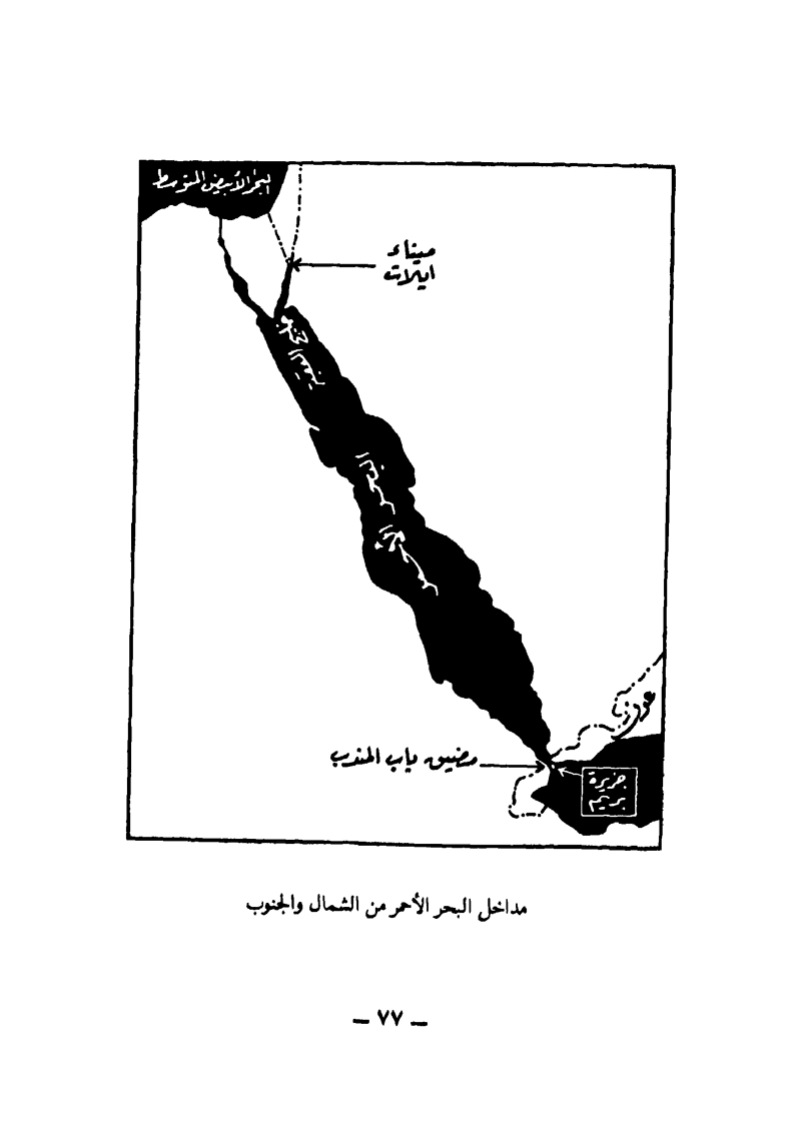 البحر الأبيض المتوسط
ميناء
ايلات
خليج العقبة
البحر الأحمر
عدن
مضيق باب المندب
جزيرة
بريم
مداخل البحر الأحمر من الشمال والجنوب
— ٧٧ —